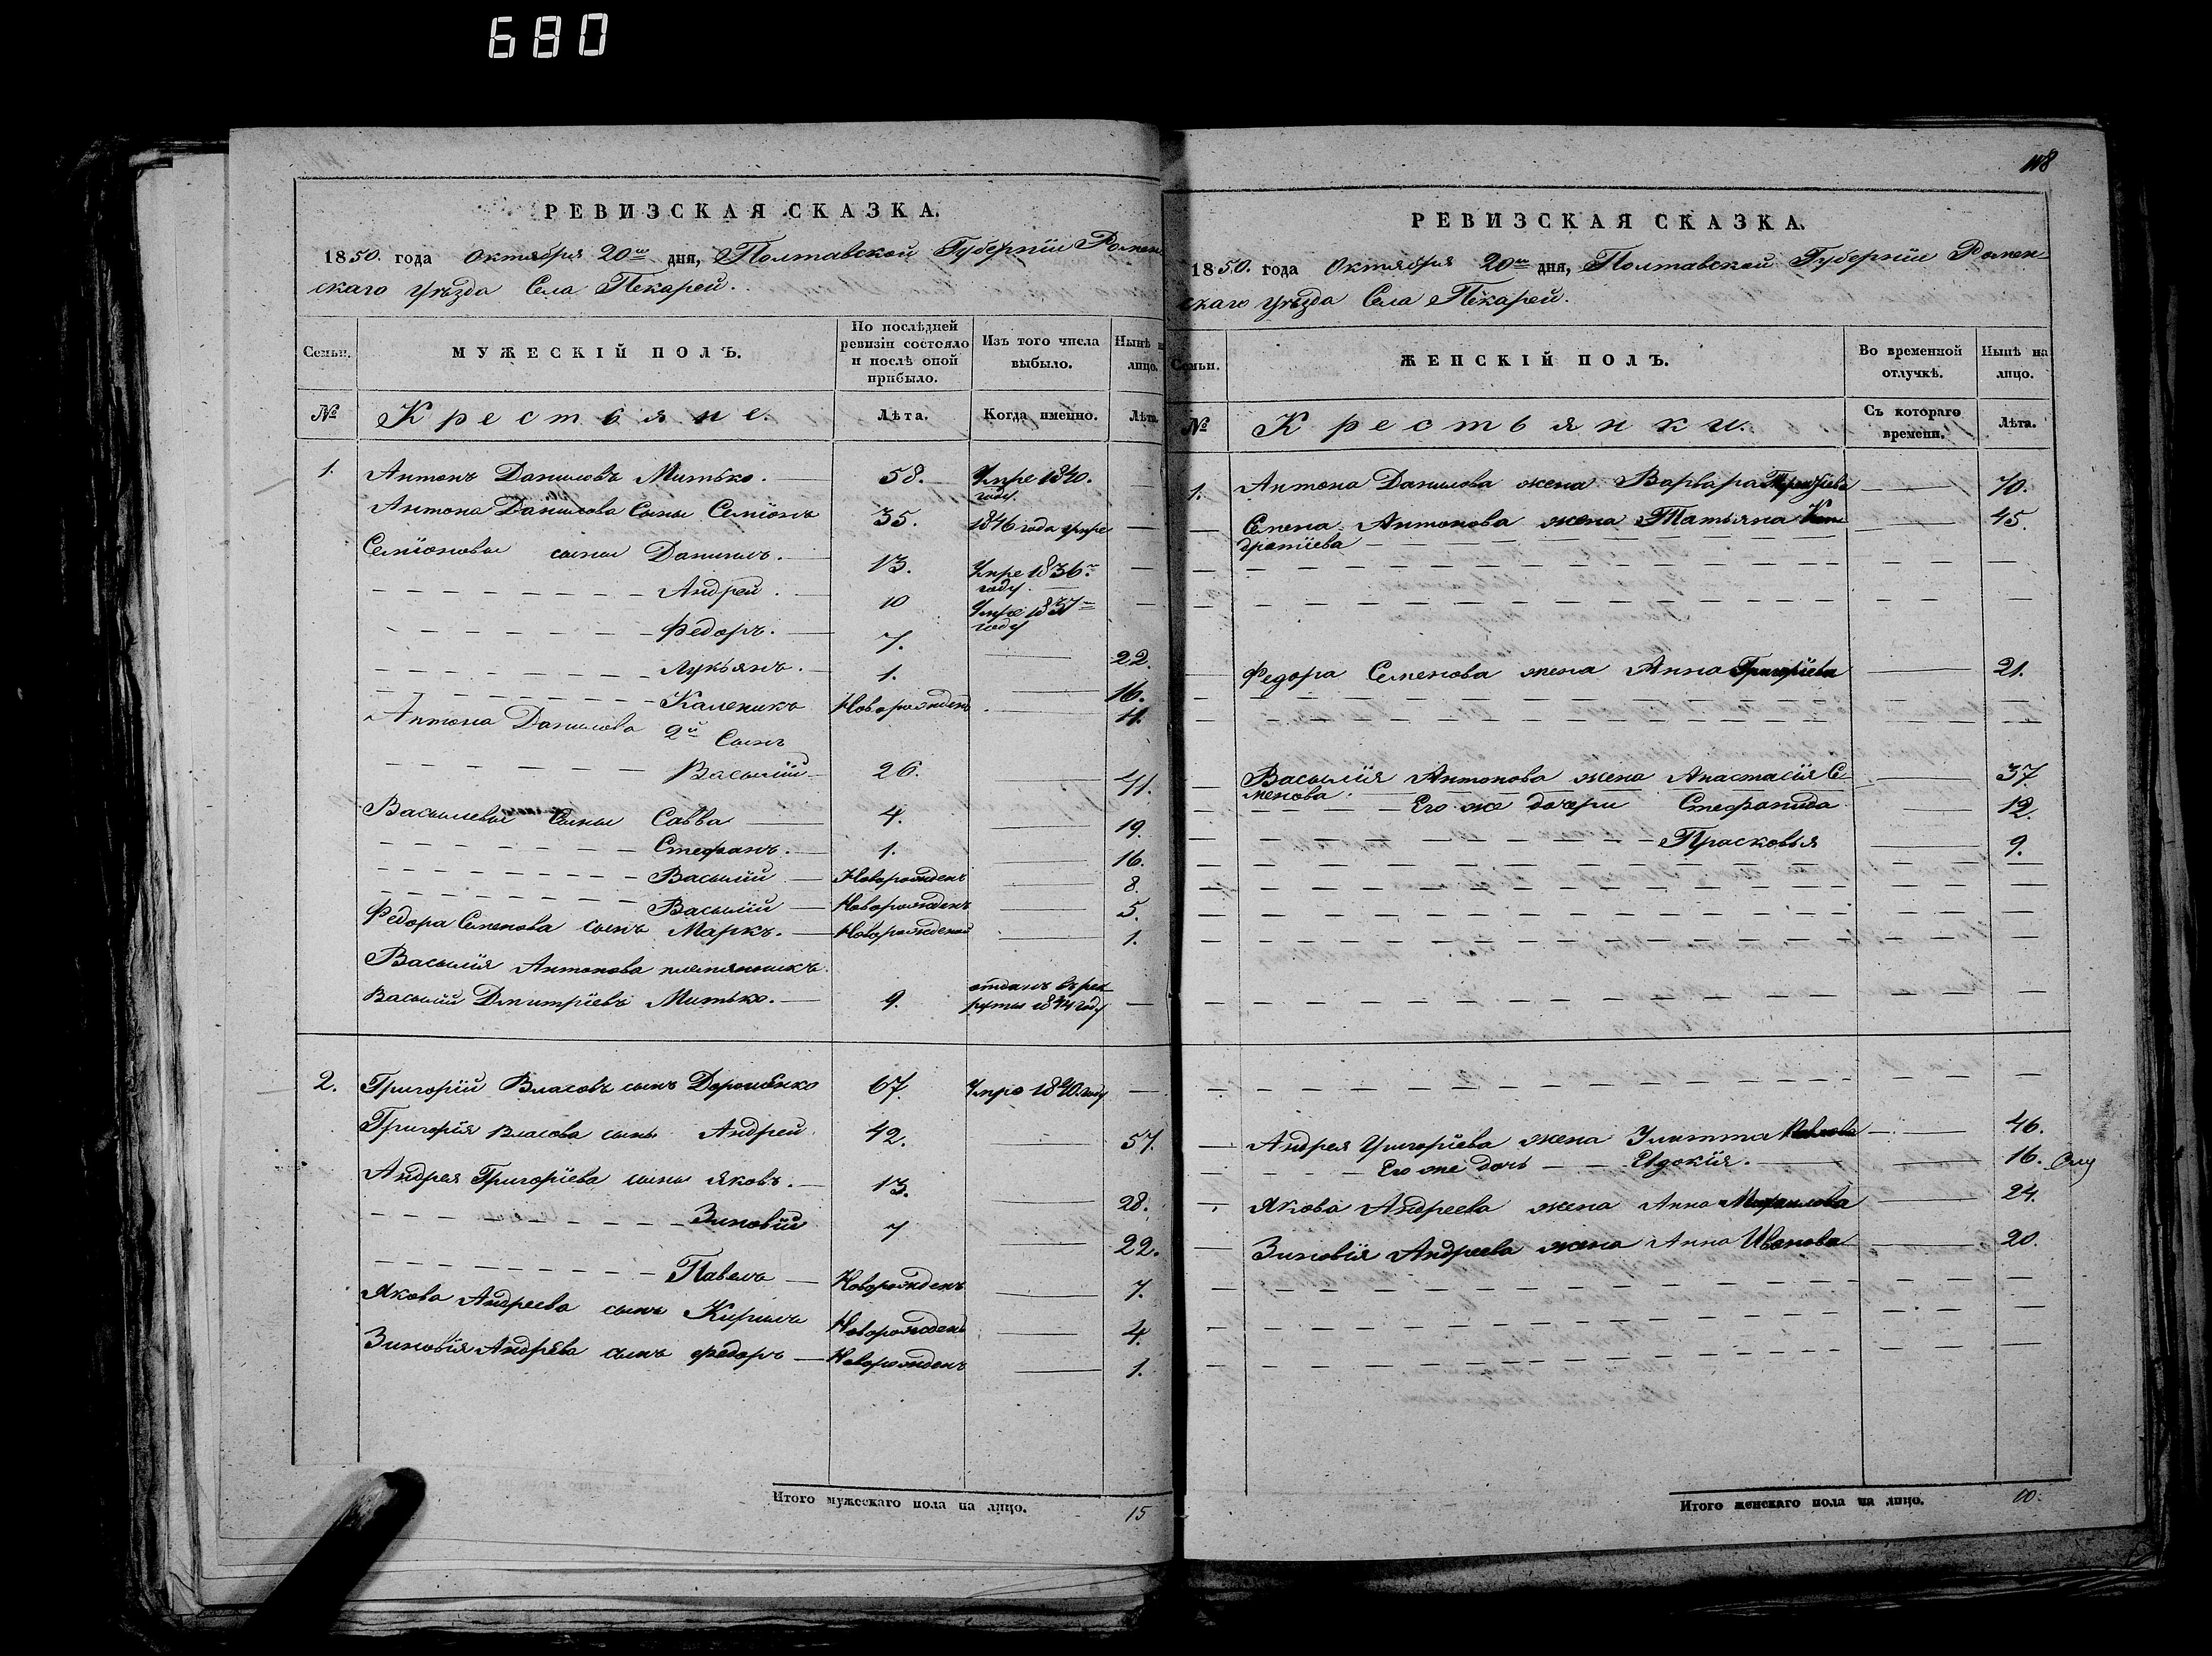 680
РЕВИЗСКАЯ СКАЗКА.
1850. года Октября 20го дня, Полтавской Губерніи Ромен
скаго уѣзда Села Пекарей.
Семьи.
МУЖЕСКІЙ ПОЛЪ.
По послѣдней ревизіи состояло и послѣ оной прибыло.
Изъ того числа выбыло.
Нынѣ н лицо.
№
Крестьяне.
Лѣта.
Когда именно.
Лѣта
1. Антонъ Даниловъ Митько. 58. Умре 1840. году. —
Антона Данилова Сыны Семіонъ 35. 1846 года умре —
Семіоновы сыны Даниилъ. 13. Умре 1836. году. —
Андрей. 10 Умре 1837 году —
Федоръ. 7. — 22.
Лукьянъ. 1. — 16.
Каленикъ Новорожденъ — 11.
Антона Данилова 2й Сынъ
Василій 26. — 41.
Васильевы Сыны Савва 4. — 19.
Стефанъ. 1. — 16.
Василій Новорожденъ — 8.
Василій Новорожденъ — 5.
Федора Семенова сынъ Маркъ. Новорожденой — 1.
Василія Антонова племянникъ
Василій Дмитріевъ Митько. 9. отданъ въ рек
руты 1844 году —
2. Григорій Власовъ сынъ 67. Умре 1840. году —
Григорія Власова сынъ Андрей 42. — 57.
Андрея Григоріева сыны Яковъ. 13. — 28.
Зиновій 7 — 22.
Павелъ Новорожденъ — 7.
Якова Андреева сынъ Кирилъ Новорожденъ — 4.
Зиновія Андрѣева сынъ Федоръ Новорожденъ — 1.
Итого мужескаго пола на лицо. 15
118
РЕВИЗСКАЯ СКАЗКА.
1850. года Октября 20го дня, Полтавской Губерніи Ромен
скаго уѣзда Села Пекарей.
Семьи.
ЖЕНСКІЙ ПОЛЪ.
Во временной отлучкѣ.
Нынѣ на лицо.
№
Крестьянки.
Съ котораго времени.
Лѣта.
1. Антона Данилова жена Варвара — 70.
Семена Антонова жена Татьяна Кон — 45.
дратіева
Федора Семенова жена Анна Григоріева — 21.
Василія Антонова жена Анастасія Се — 37.
менова.
Его же дочери Стефанида — 12.
Прасковья — 9.
Андрея Григоріева жена Улитта Павлова — 46.
Его же дочь Евдокія. — 16.
Якова Андреева жена Анна Михаилова — 24.
Зиновія Андреева жена Анна Иванова — 20.
Итого женскаго пола на лицо. 10.